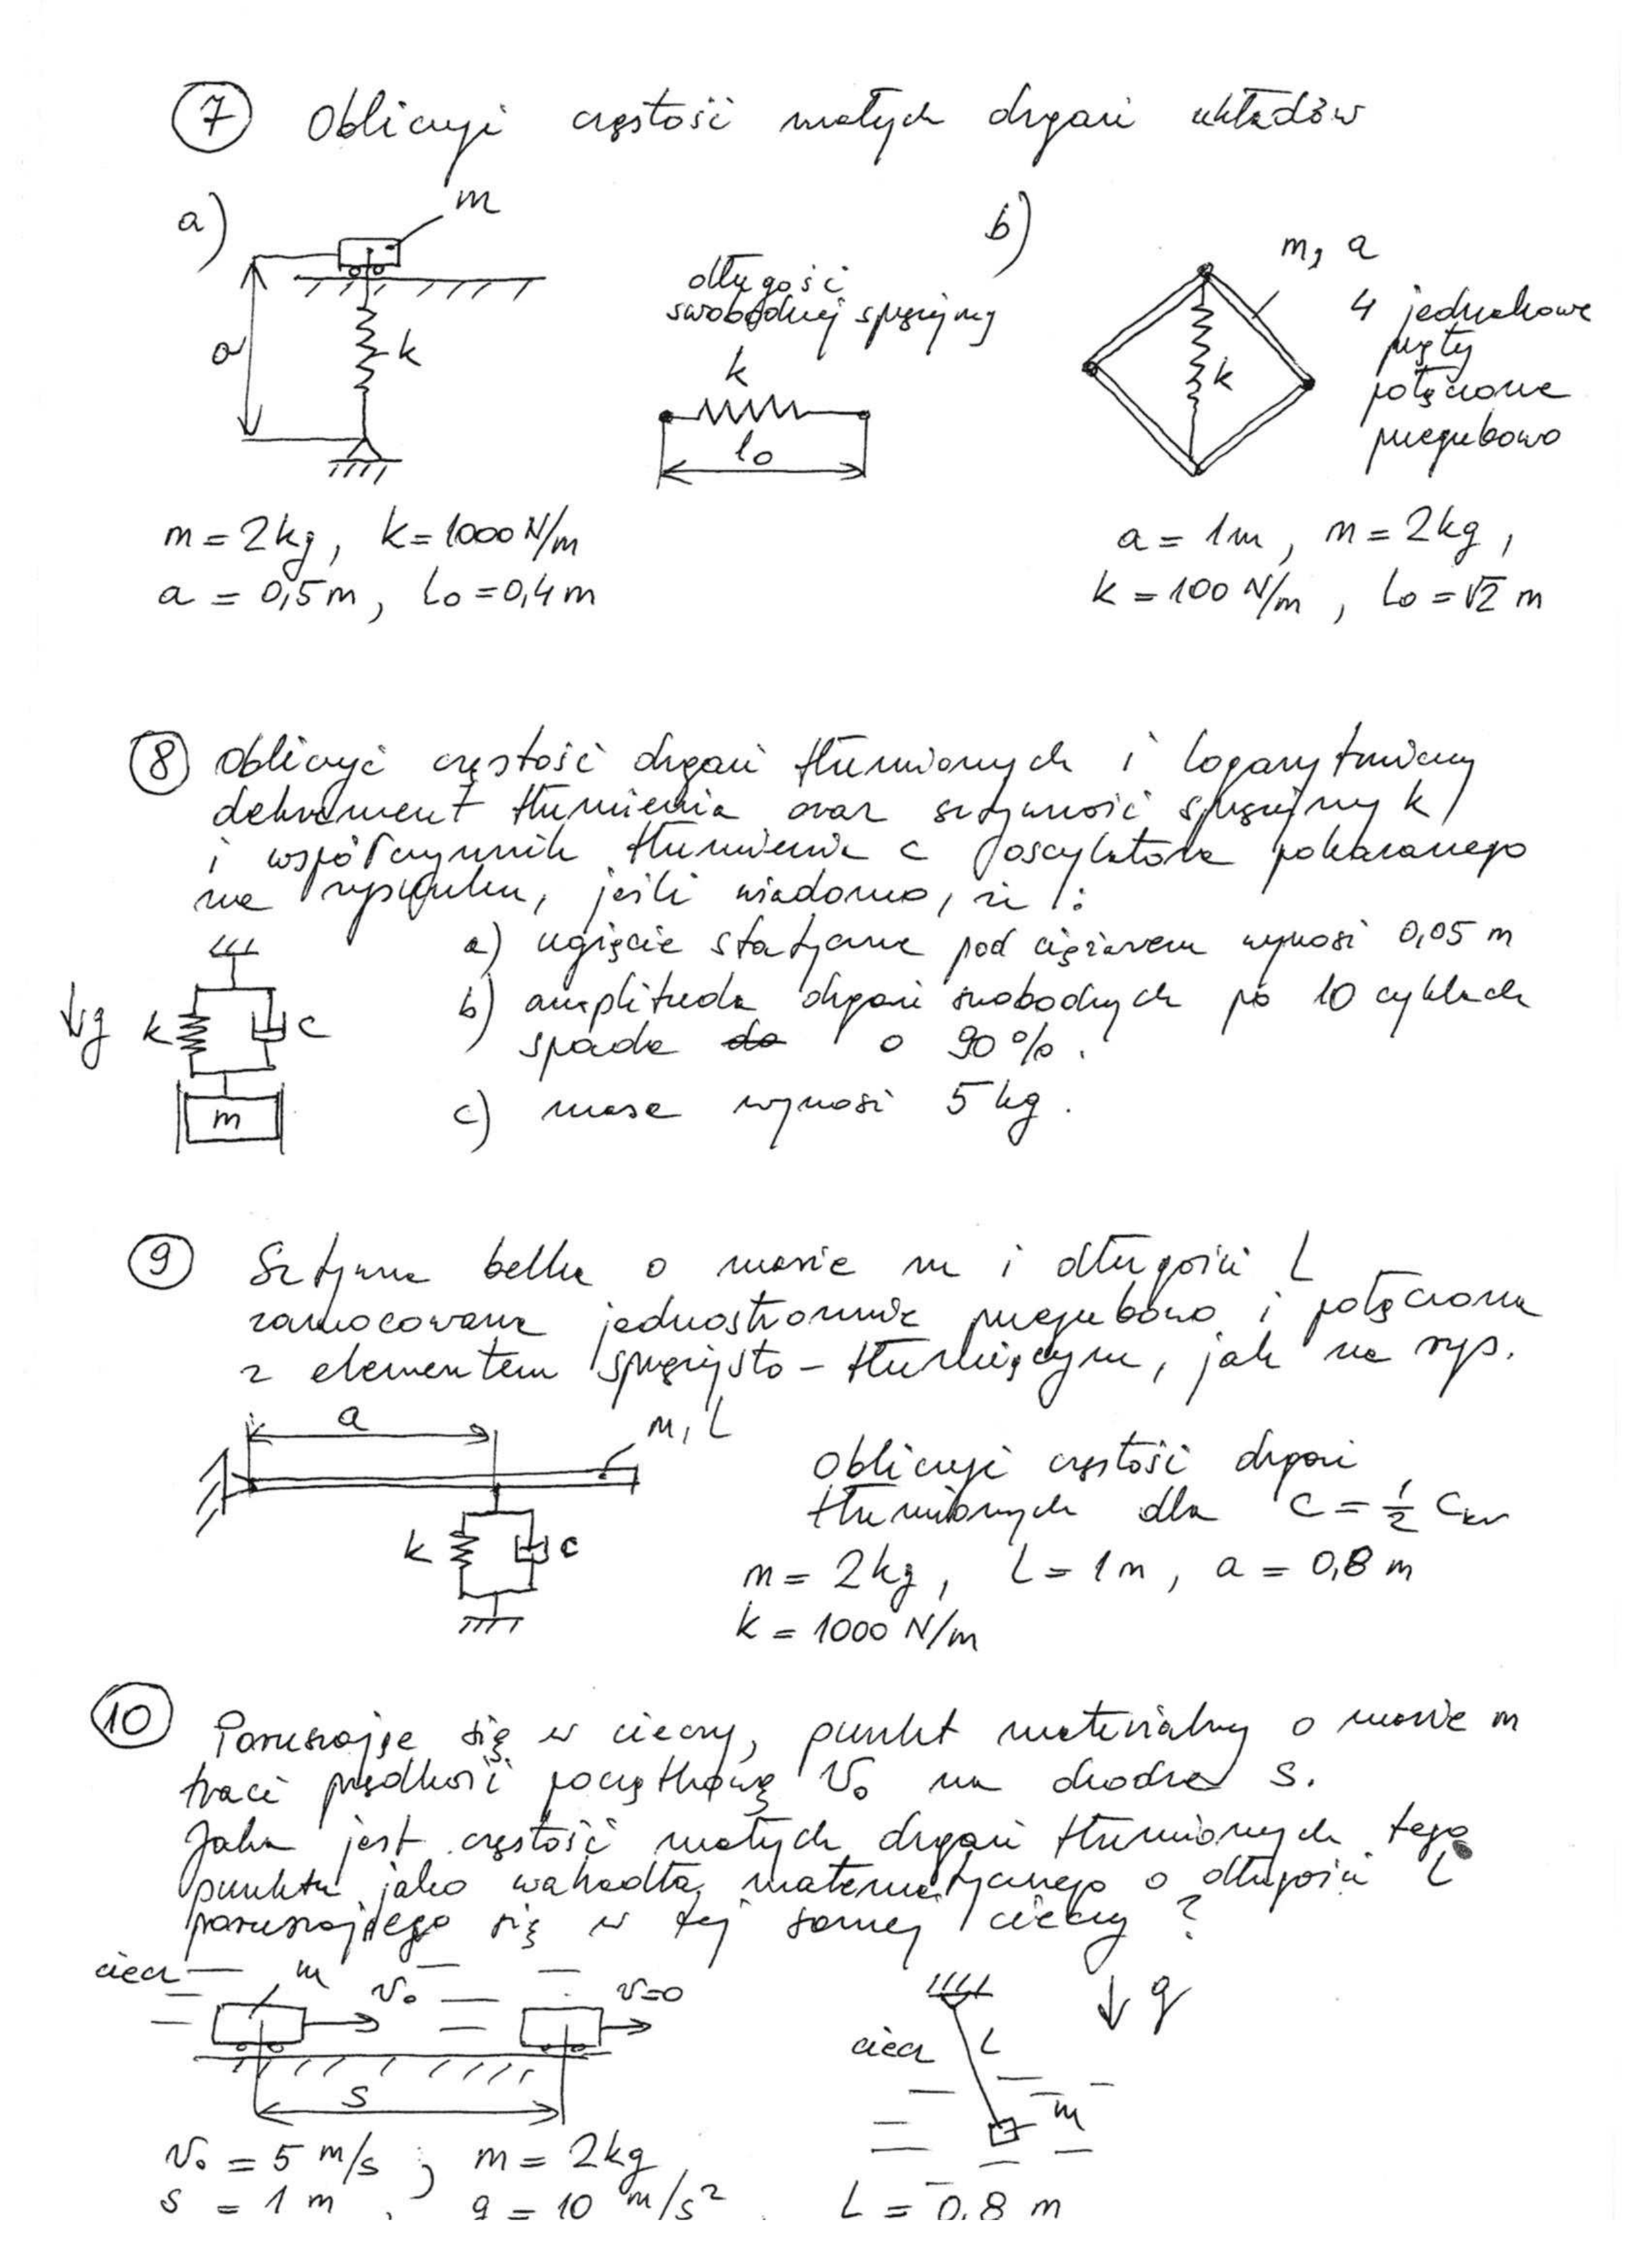 7 Obliczyć częstość małych drgań układów
a) m
a k
m = 2 kg, k = 1000 N/m
a = 0,5 m, l₀ = 0,4 m
długość
swobodnej sprężyny
k
l₀
b) m, a
k
4 jednakowe
pręty
połączone
przegubowo
a = 1 m, m = 2 kg,
k = 100 N/m, l₀ = √2 m
8 Obliczyć częstość drgań tłumionych i logarytmiczny
dekrement tłumienia oraz sztywność sprężyny k
i współczynnik tłumienia c oscylatora pokazanego
na rysunku, jeśli wiadomo, że:
a) ugięcie statyczne pod ciężarem wynosi 0,05 m
b) amplituda drgań swobodnych po 10 cyklach
spada do o 90%.
c) masa wynosi 5 kg.
g k c
m
9 Sztywna belka o masie m i długości L
zamocowana jednostronnie przegubowo i połączona
z elementem sprężysto-tłumiącym, jak na rys.
a m, L
k c
Obliczyć częstość drgań
tłumionych dla c = 1/2 c_kr
m = 2 kg, L = 1 m, a = 0,8 m
k = 1000 N/m
10 Poruszając się w cieczy, punkt materialny o masie m
traci prędkość początkową v₀ na drodze s.
Jaka jest częstość małych drgań tłumionych tego
punktu jako wahadła matematycznego o długości L
poruszającego się w tej samej cieczy?
ciecz m v₀ v=0
s
ciecz L g
m
v₀ = 5 m/s ; m = 2 kg
s = 1 m , g = 10 m/s², L = 0,8 m